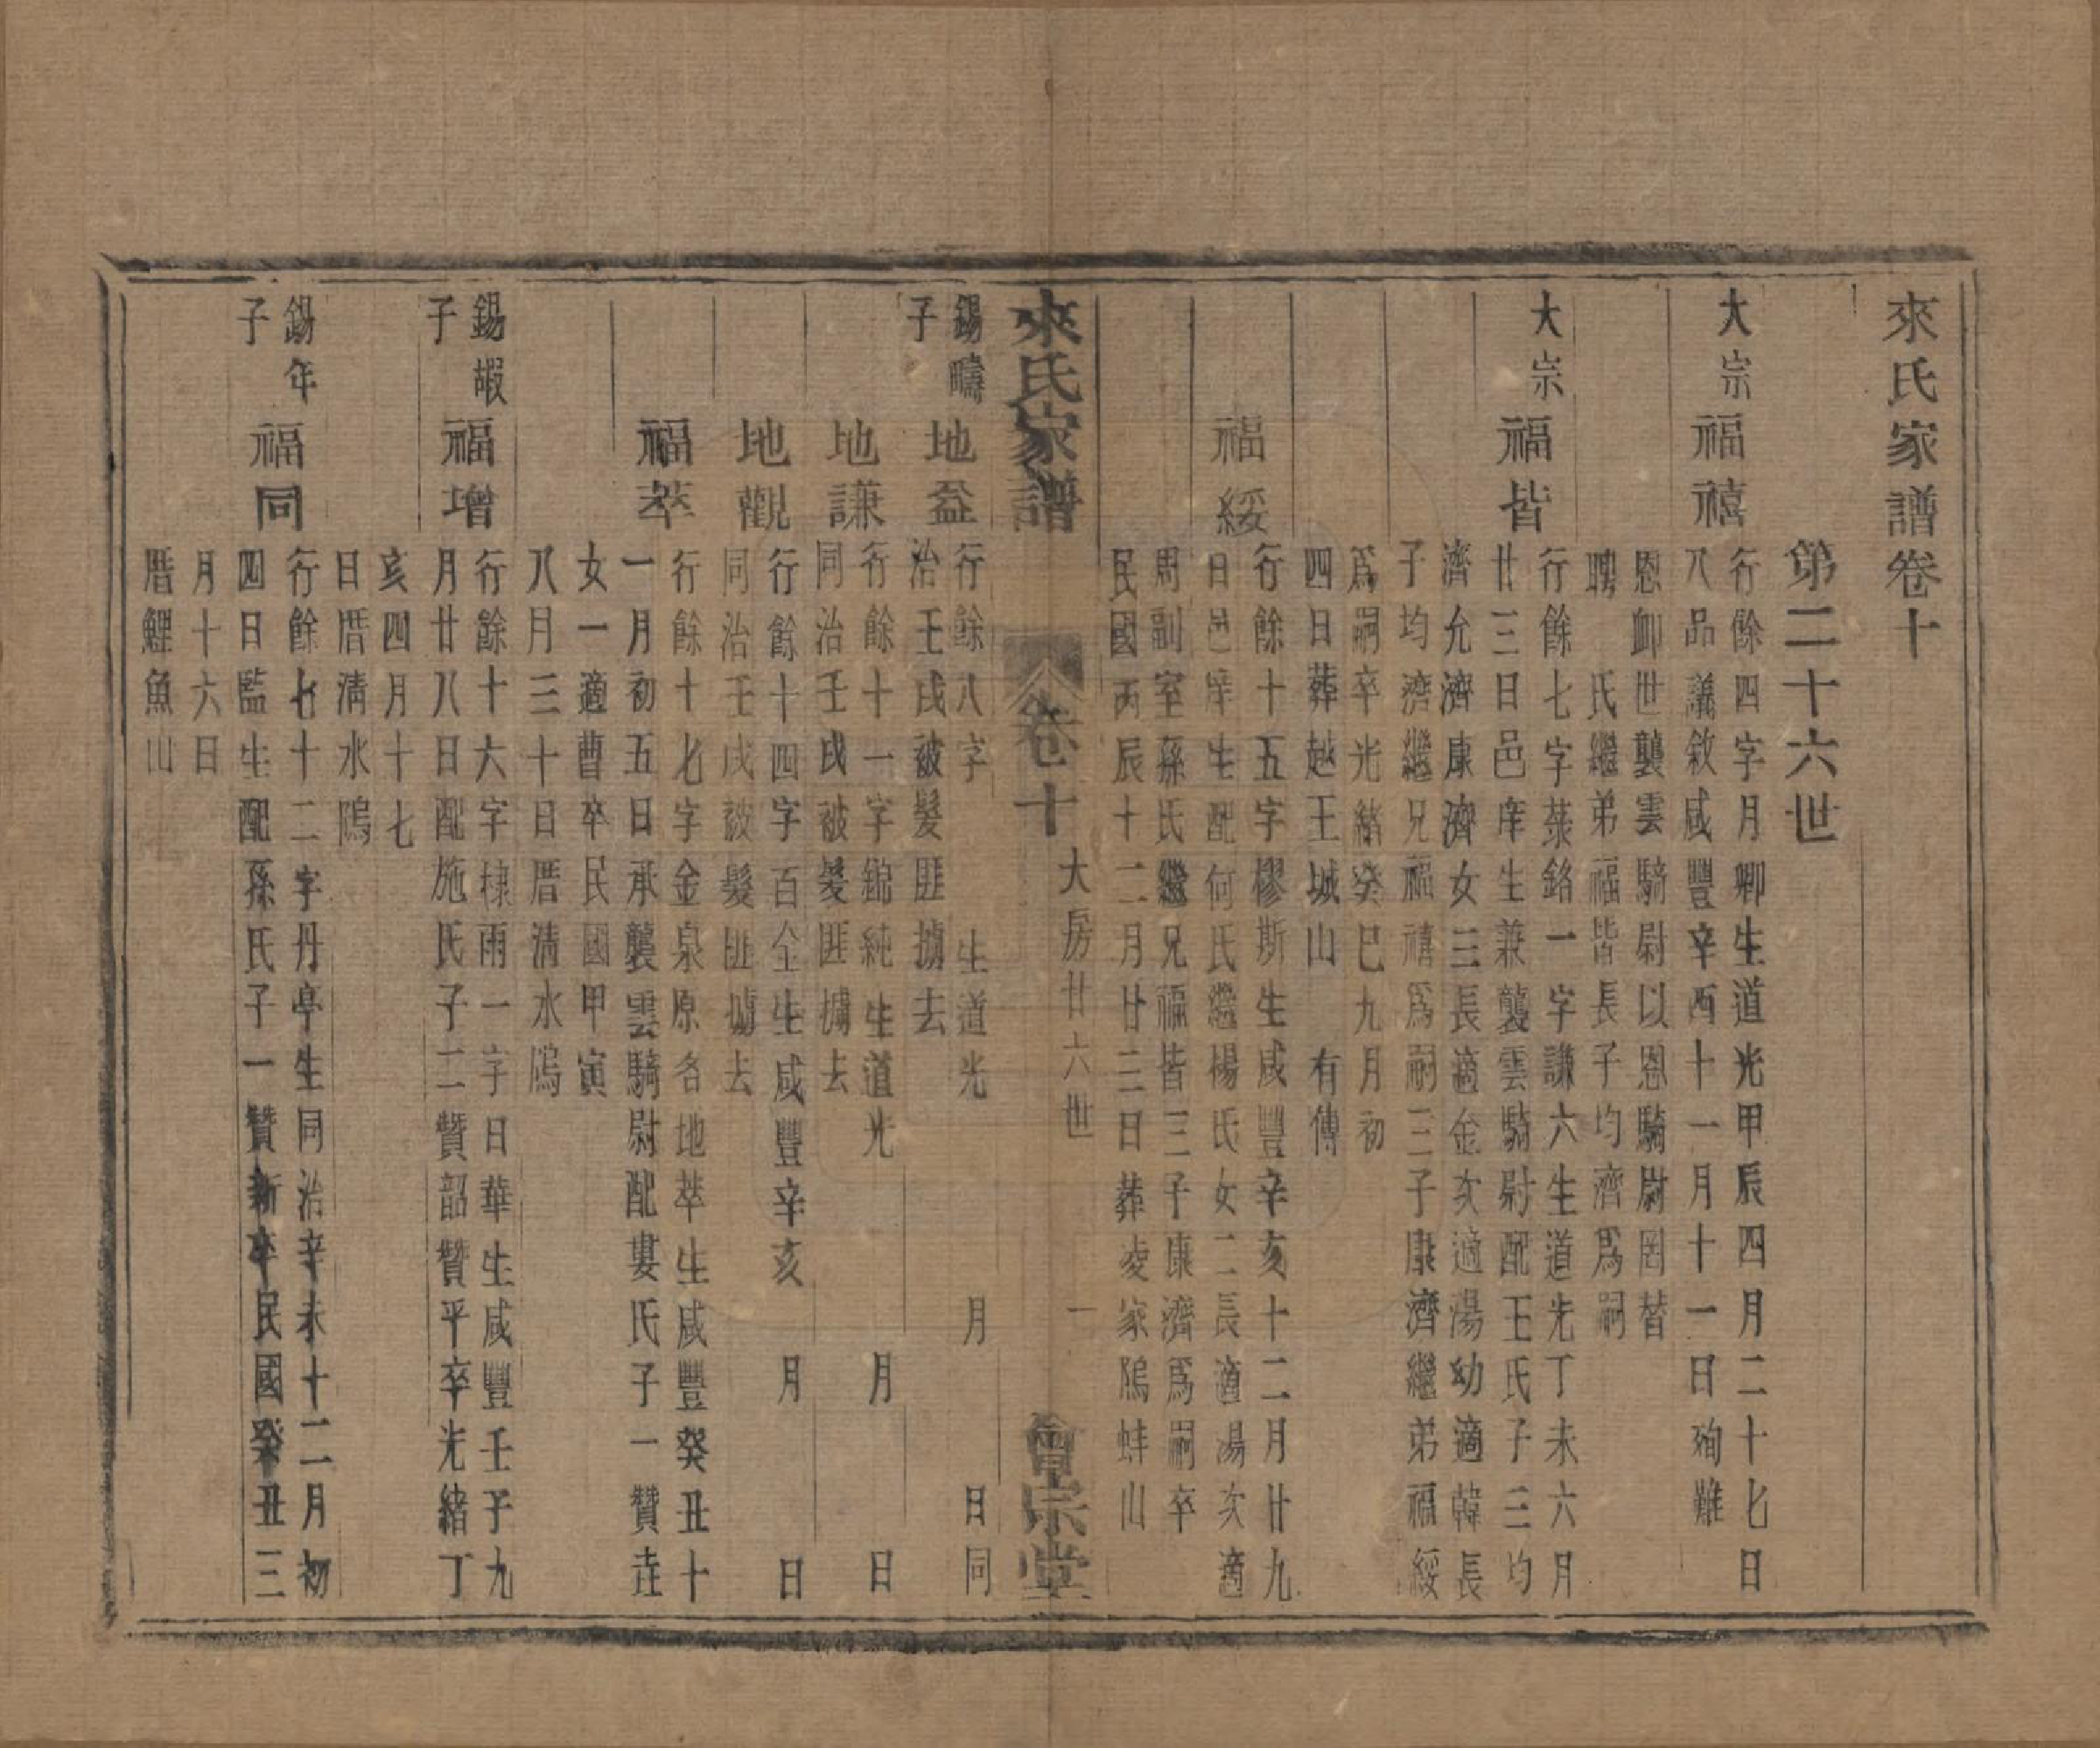 來氏家譜卷十
第二十六世
大宗
福禧
行餘四字月卿生道光甲辰四月二十七日
八品議敘咸豐辛酉十一月十一日殉難
恩卹世襲雲騎尉以恩騎尉罔替
聘　氏繼弟福皆長子均濟爲嗣
大宗
福皆
行餘七字萊銘一字謙六生道光丁未六月
廿三日邑庠生兼襲雲騎尉配王氏子三均
濟允濟康濟女三長適金次適湯幼適韓長
子均濟繼兄福禧爲嗣三子康濟繼弟福綏
爲嗣卒光緒癸巳九月初
四日葬越王城山　有傳
福綏
行餘十五字樛斯生咸豐辛亥十二月廿九
日邑庠生配何氏繼楊氏女二長適湯次適
周副室孫氏繼兄福皆三子康濟爲嗣卒
民國丙辰十二月廿三日葬凌家隖蚌山
來氏家譜
卷十
大房廿六世
一
會宗堂
錫疇子
地益
行餘八字　　生道光　　月　　日同
治壬戌被髮匪擄去
地謙
行餘十一字錦純生道光　　月　　日
同治壬戌被髮匪擄去
地觀
行餘十四字百全生咸豐辛亥　月　　日
同治壬戌被髮匪擄去
福萃
行餘十七字金泉原名地萃生咸豐癸丑十
一月初五日承襲雲騎尉配婁氏子一贊垚
女一適曹卒民國甲寅
八月三十日厝清水隖
錫嘏子
福增
行餘十六字棣雨一字日華生咸豐壬子九
月廿八日配施氏子二贊韶贊平卒光緒丁
亥四月十七
日厝清水隖
錫年子
福同
行餘七十二字丹亭生同治辛未十二月初
四日監生配孫氏子一贊新卒民國癸丑三
月十六日
厝鯉魚山